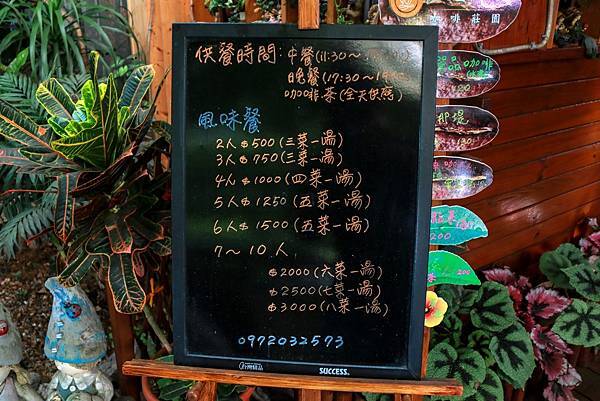 供餐時間:中餐(11:30~
晚餐(17:30~19
咖啡茶(全天供應)
風味餐
2人$500(三菜一湯)
3人$750(三菜一湯)
4人$1000(四菜一湯)
5人$1250(五菜一湯)
6人$1500(五菜一湯)
7~10人
$2000(六菜一湯)
$2500(七菜一湯)
$3000(八菜一湯)
0972032573
SUCCESS.
咖啡莊園
品咖啡
那堤
200
200